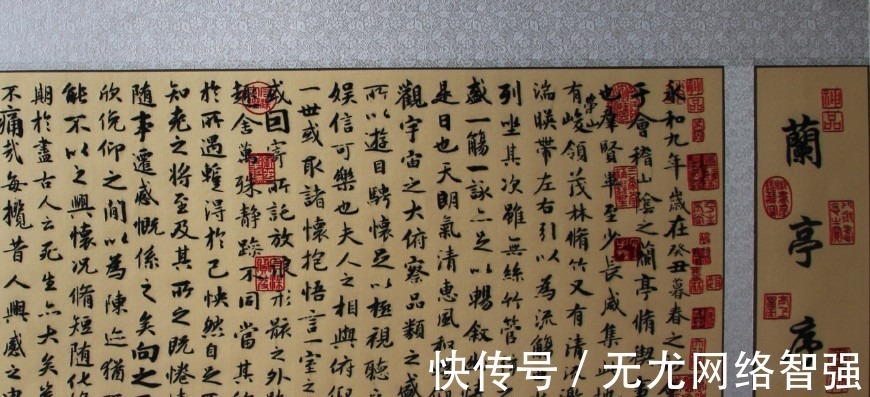 蘭亭序
永和九年歲在癸丑暮春之
于會稽山陰之蘭亭脩禊事
也羣賢畢至少長咸集此地
有崇山峻領茂林脩竹又有清流激
湍暎帶左右引以為流觴
列坐其次雖無絲竹管
盛一觴一詠亦足以暢敘
是日也天朗氣清惠風和
觀宇宙之大俯察品類之盛
所以遊目騁懷足以極視聽之
娛信可樂也夫人之相與俯仰
一世或取諸懷抱悟言一室之
或因寄所託放浪形骸之外
趣舍萬殊靜躁不同當其
於所遇蹔得於己怏然自足
知老之將至及其所之既惓
隨事遷感慨係之矣向之
欣俛仰之閒以為陳迹猶
能不以之興懷況脩短隨化
期於盡古人云死生亦大矣
不痛哉每攬昔人興感之由
快传号 / 无尤网络智强